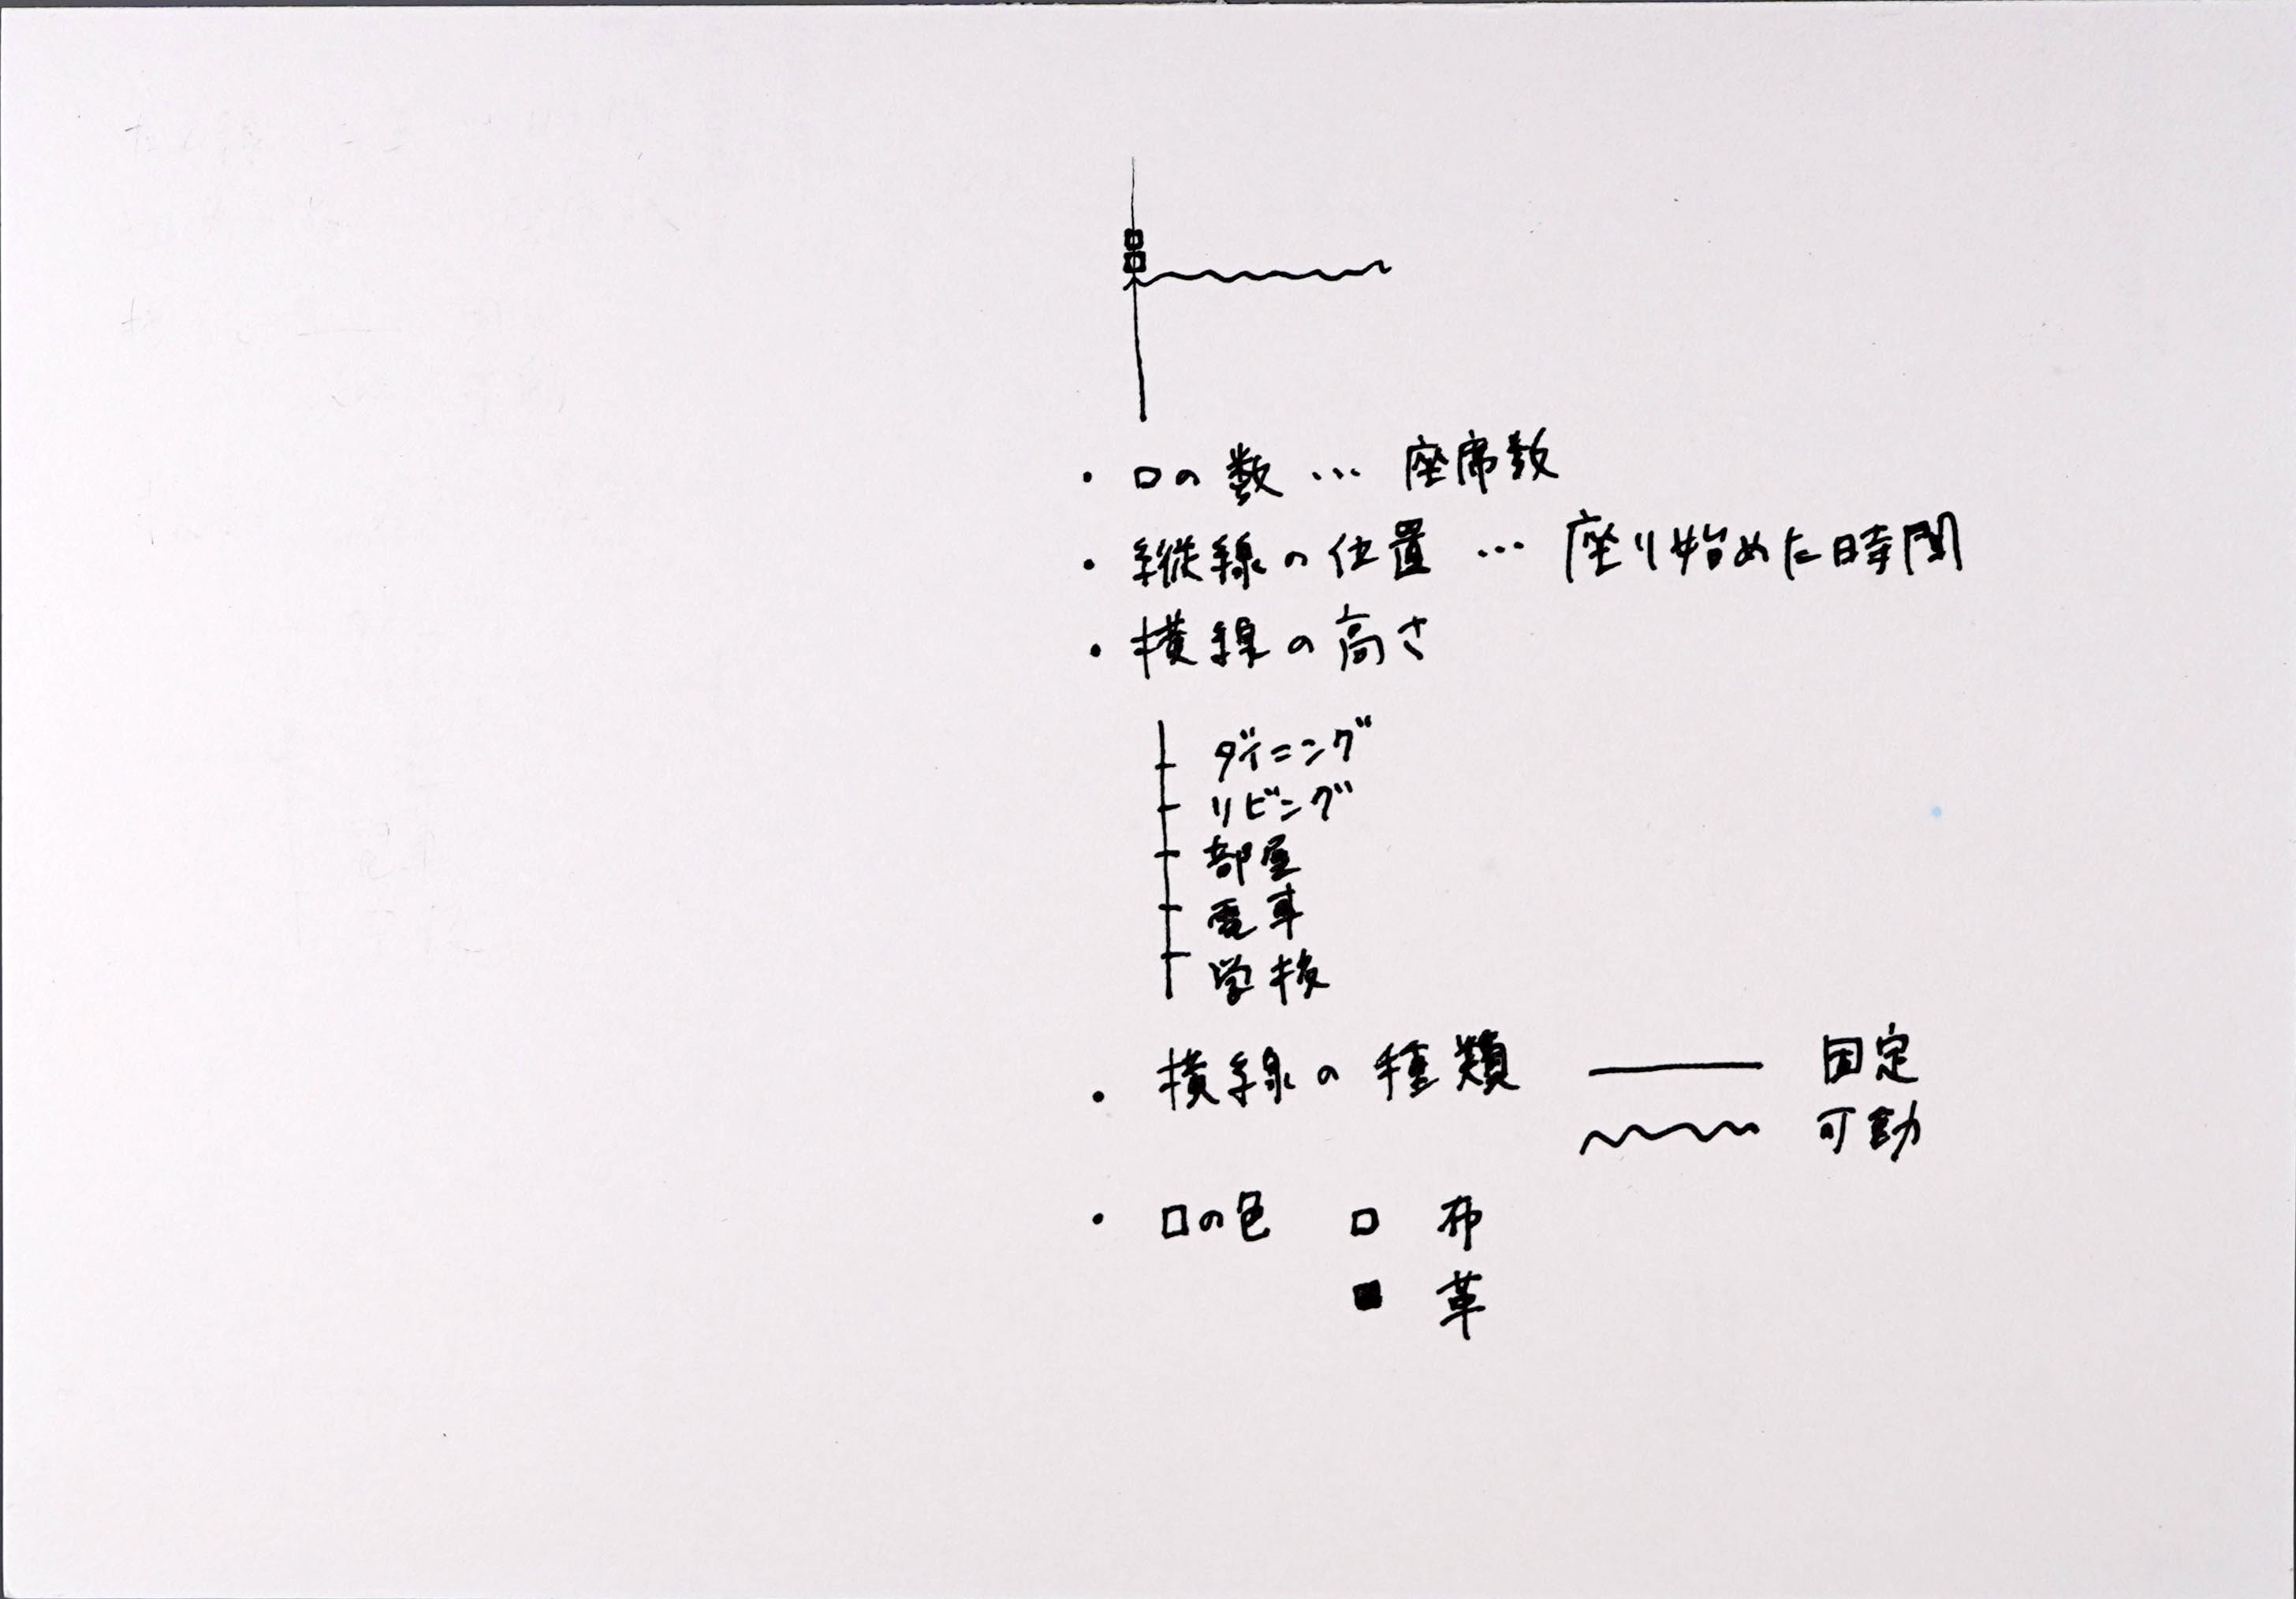 ・□の数 … 座席数
・縦線の位置 … 座り始めた時間
・横線の高さ
ダイニング
リビング
部屋
電車
学校
・横線の種類 固定
可動
・□の色 □ 布
■ 革